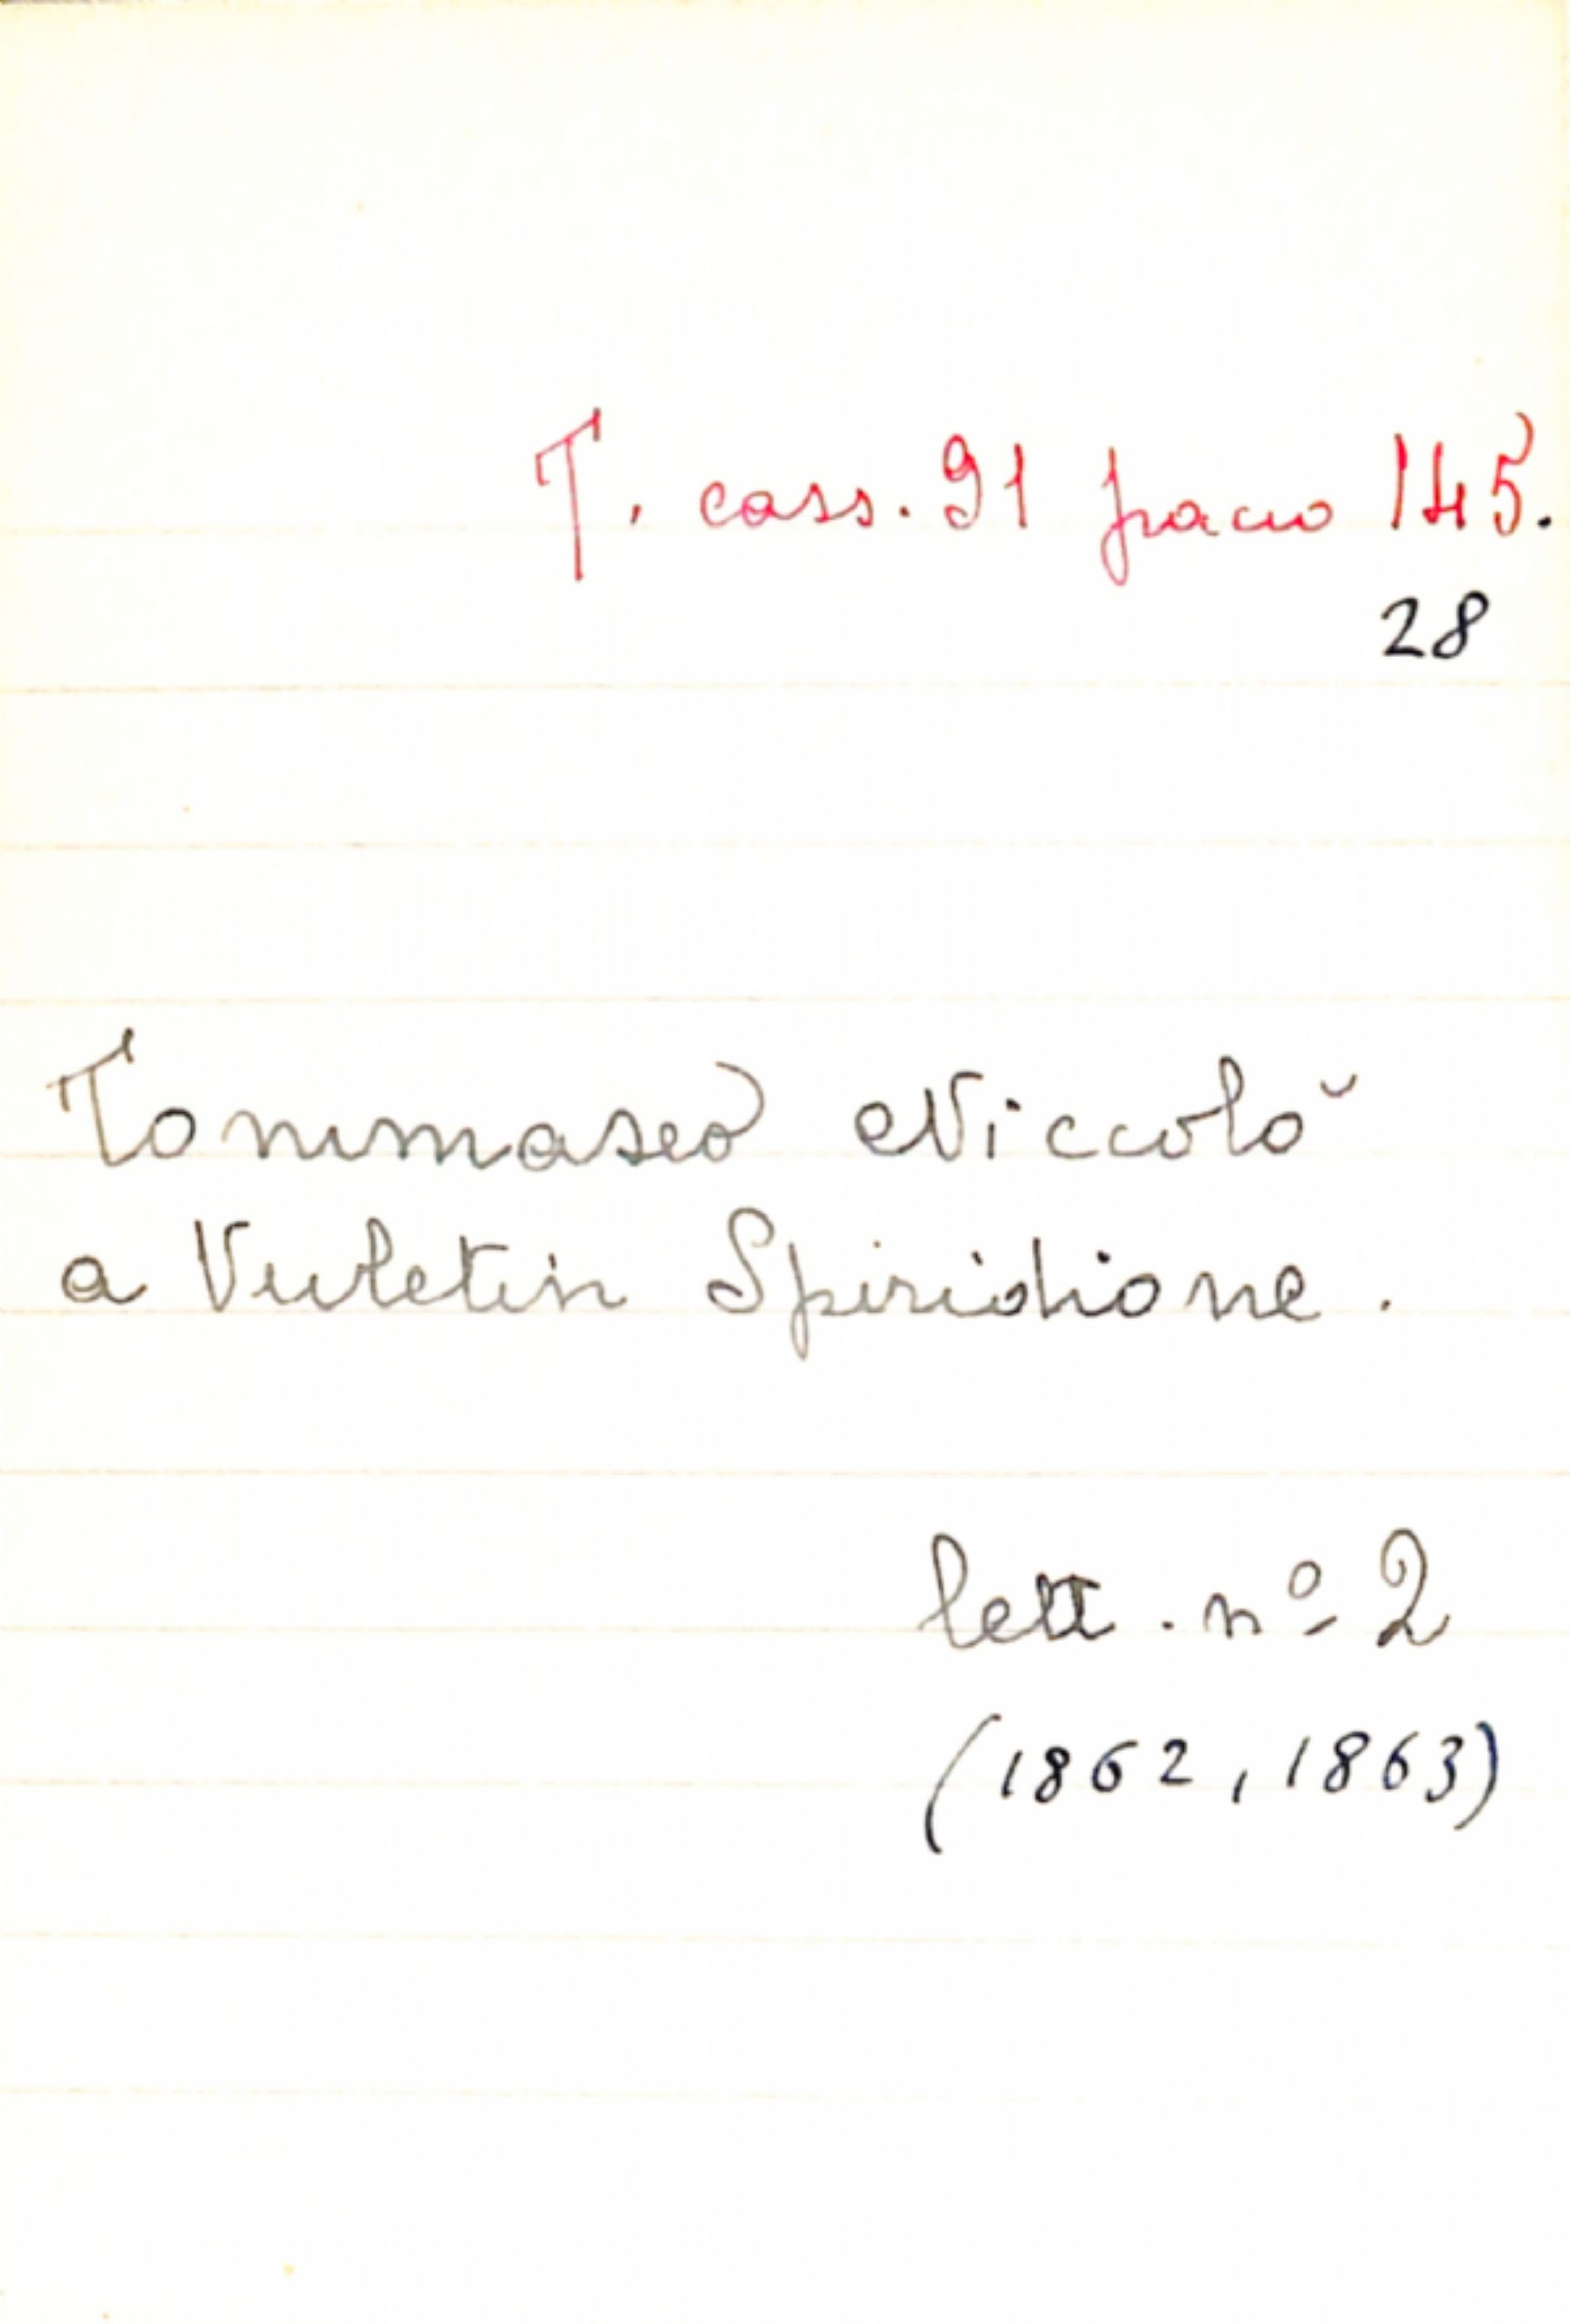 T. cass. 91 pacco 145.
28
Tommaseo Niccolò
a Vuletin Spiridione.
lett. nº 2
(1862, 1863)